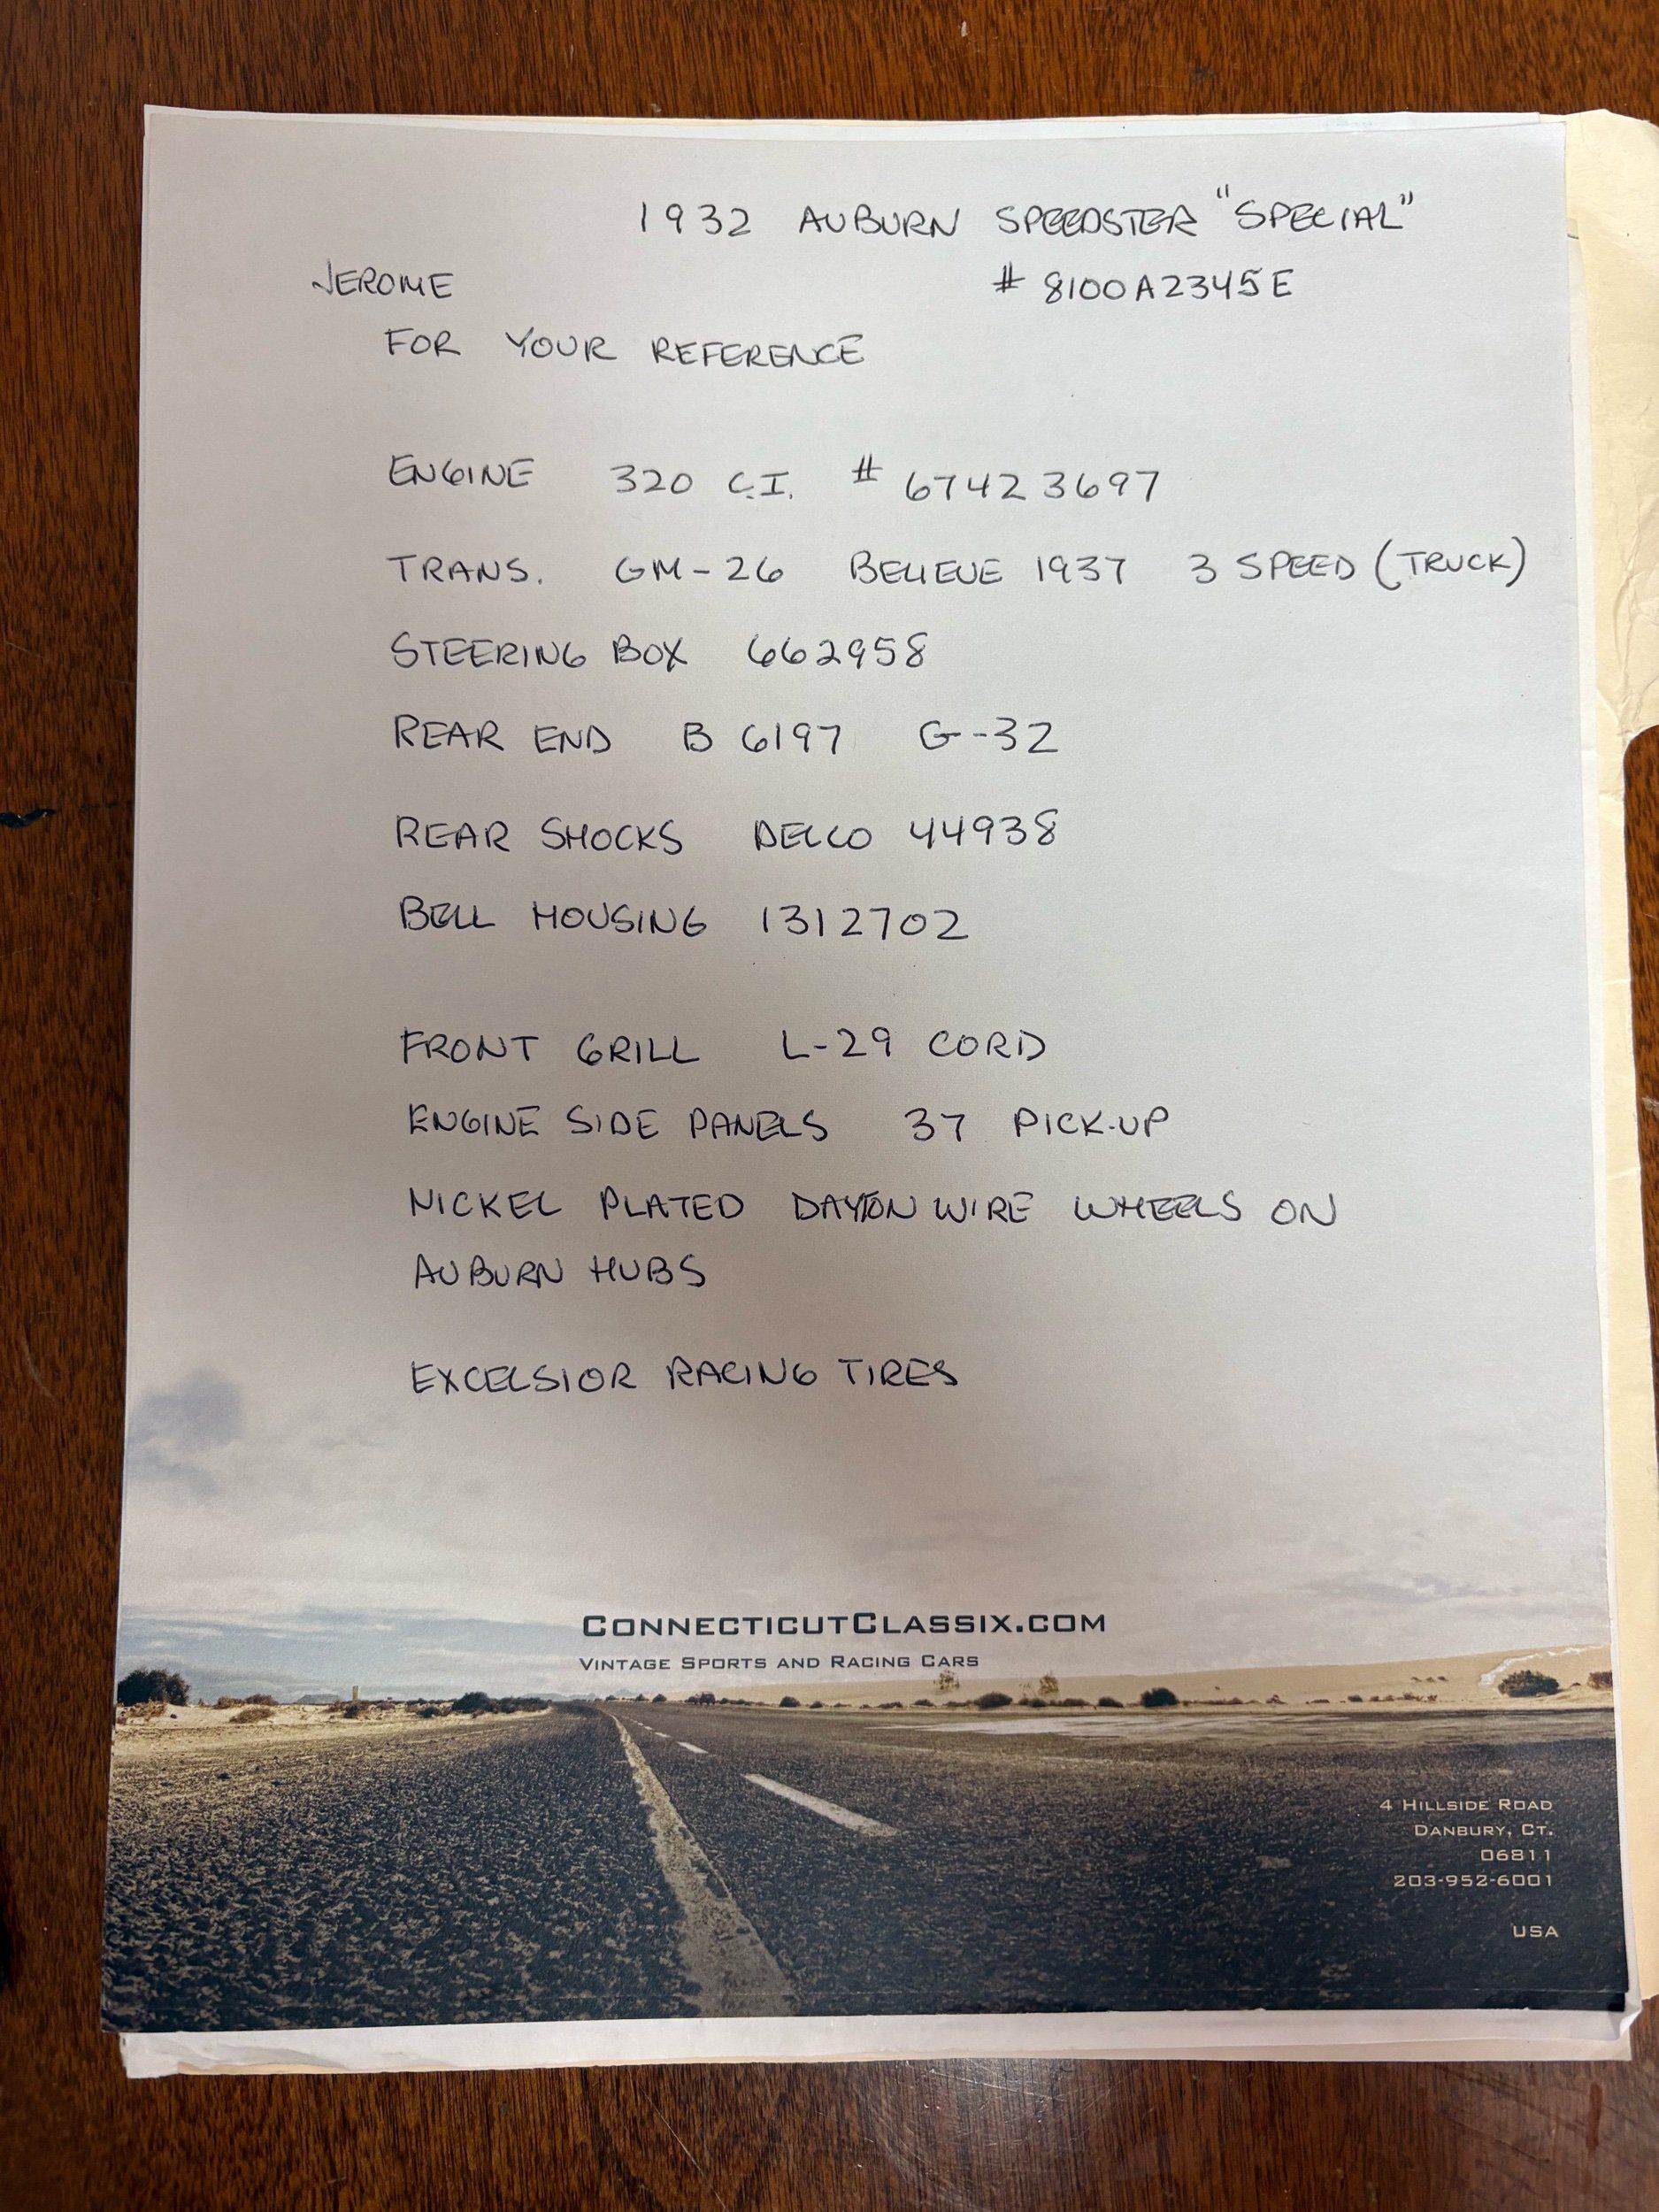 1932 AUBURN SPEEDSTER "SPECIAL"
JEROME # 8100A2345E
FOR YOUR REFERENCE
ENGINE 320 C.I. # 67423697
TRANS. GM-26 BELIEVE 1937 3 SPEED (TRUCK)
STEERING BOX 662958
REAR END B 6197 G-32
REAR SHOCKS DELCO 44938
BELL HOUSING 1312702
FRONT GRILL L-29 CORD
ENGINE SIDE PANELS 37 PICK-UP
NICKEL PLATED DAYTON WIRE WHEELS ON
AUBURN HUBS
EXCELSIOR RACING TIRES
CONNECTICUTCLASSIX.COM
VINTAGE SPORTS AND RACING CARS
4 HILLSIDE ROAD
DANBURY, CT.
06811
203-952-6001
USA